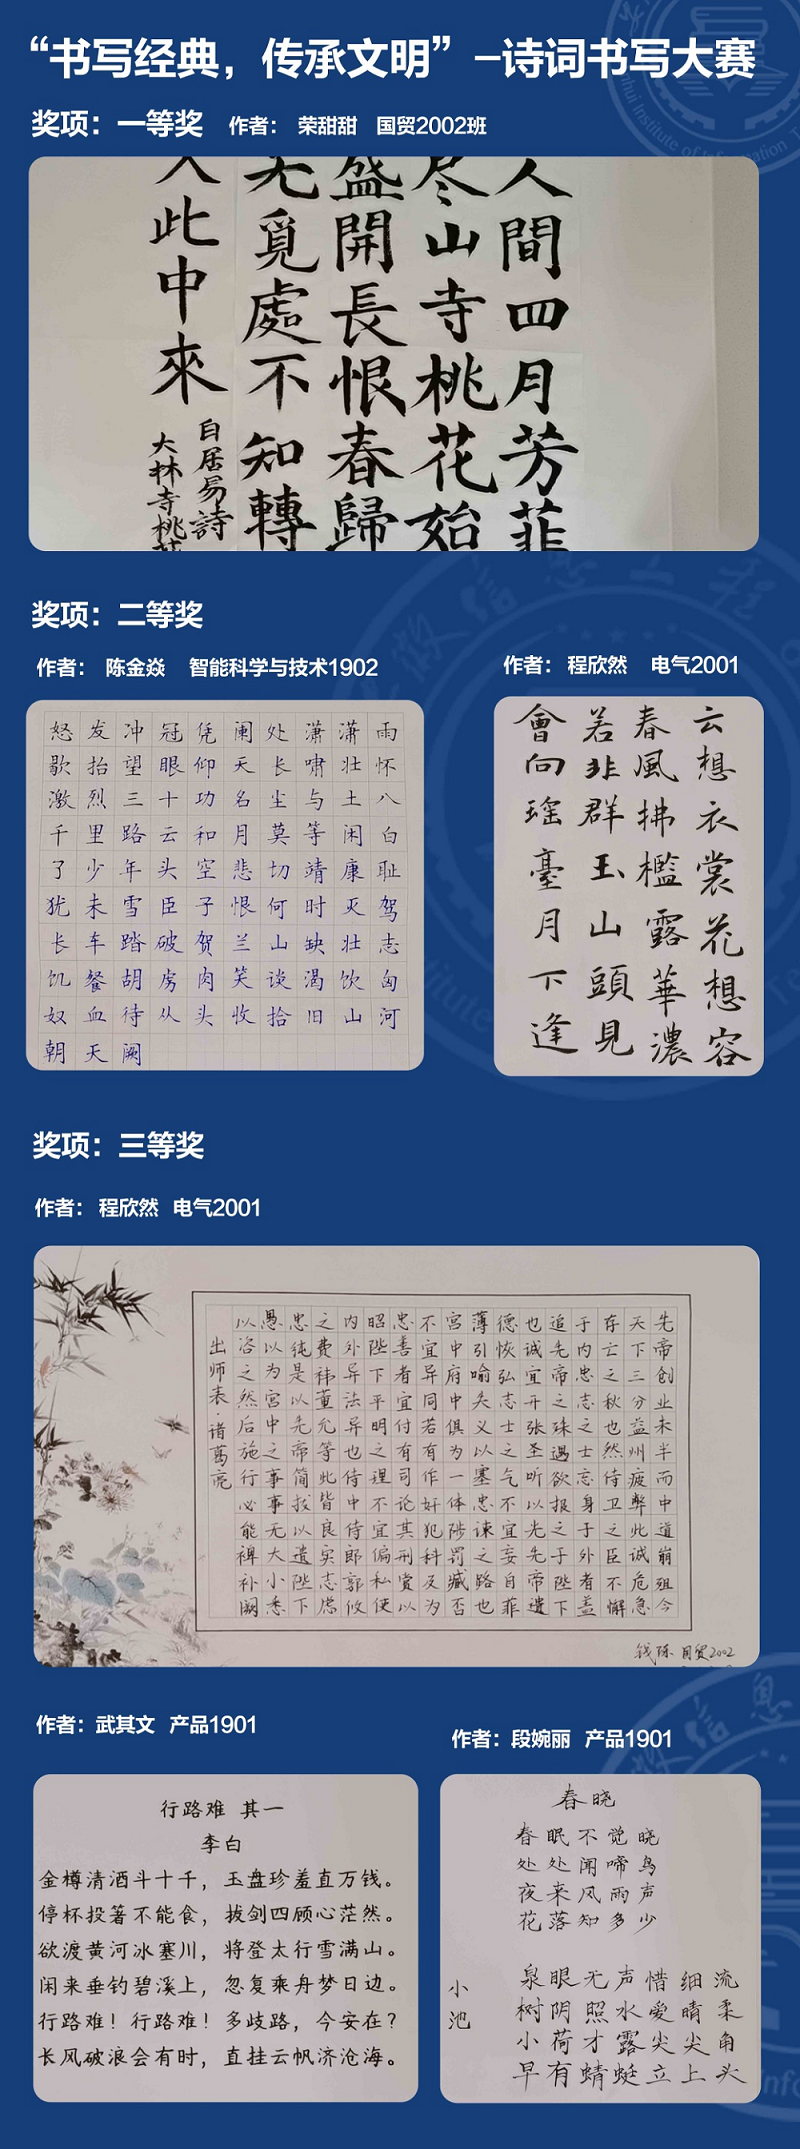 “书写经典，传承文明”–诗词书写大赛
奖项：一等奖 作者： 荣甜甜 国贸2002班
人間四月芳菲
尽山寺桃花始
盛開長恨春歸
无覓處不知轉
入此中來
白居易詩
大林寺桃花
奖项：二等奖
作者： 陈金焱 智能科学与技术1902
怒发冲冠凭阑处潇潇雨
歇抬望眼仰天长啸壮怀
激烈三十功名尘与土八
千里路云和月莫等闲白
了少年头空悲切靖康耻
犹未雪臣子恨何时灭驾
长车踏破贺兰山缺壮志
饥餐胡虏肉笑谈渴饮匈
奴血待从头收拾旧山河
朝天阙
作者： 程欣然 电气2001
云想衣裳花想容
春風拂檻露華濃
若非群玉山頭見
會向瑤臺月下逢
奖项：三等奖
作者： 程欣然 电气2001
先帝创业未半而中道崩殂今
天下三分益州疲弊此诚危急
存亡之秋也然侍卫之臣不懈
于内忠志之士忘身于外者盖
追先帝之殊遇欲报之于陛下
也诚宜开张圣听以光先帝遗
德恢弘志士之气不宜妄自菲
薄引喻失义以塞忠谏之路也
宫中府中俱为一体陟罚臧否
不宜异同若有作奸犯科及为
忠善者宜付有司论其刑赏以
昭陛下平明之理不宜偏私使
内外异法异也侍中侍郎郭攸
之费祎董允等此皆良实志虑
忠纯是以先帝简拔以遗陛下
愚以为宫中之事事无大小悉
以咨之然后施行必能裨补阙
出师表·诸葛亮
国贸2002
作者：武其文 产品1901
行路难 其一
李白
金樽清酒斗十千，玉盘珍羞直万钱。
停杯投箸不能食，拔剑四顾心茫然。
欲渡黄河冰塞川，将登太行雪满山。
闲来垂钓碧溪上，忽复乘舟梦日边。
行路难！行路难！多歧路，今安在？
长风破浪会有时，直挂云帆济沧海。
作者：段婉丽 产品1901
春晓
春眠不觉晓
处处闻啼鸟
夜来风雨声
花落知多少
小池
泉眼无声惜细流
树阴照水爱晴柔
小荷才露尖尖角
早有蜻蜓立上头